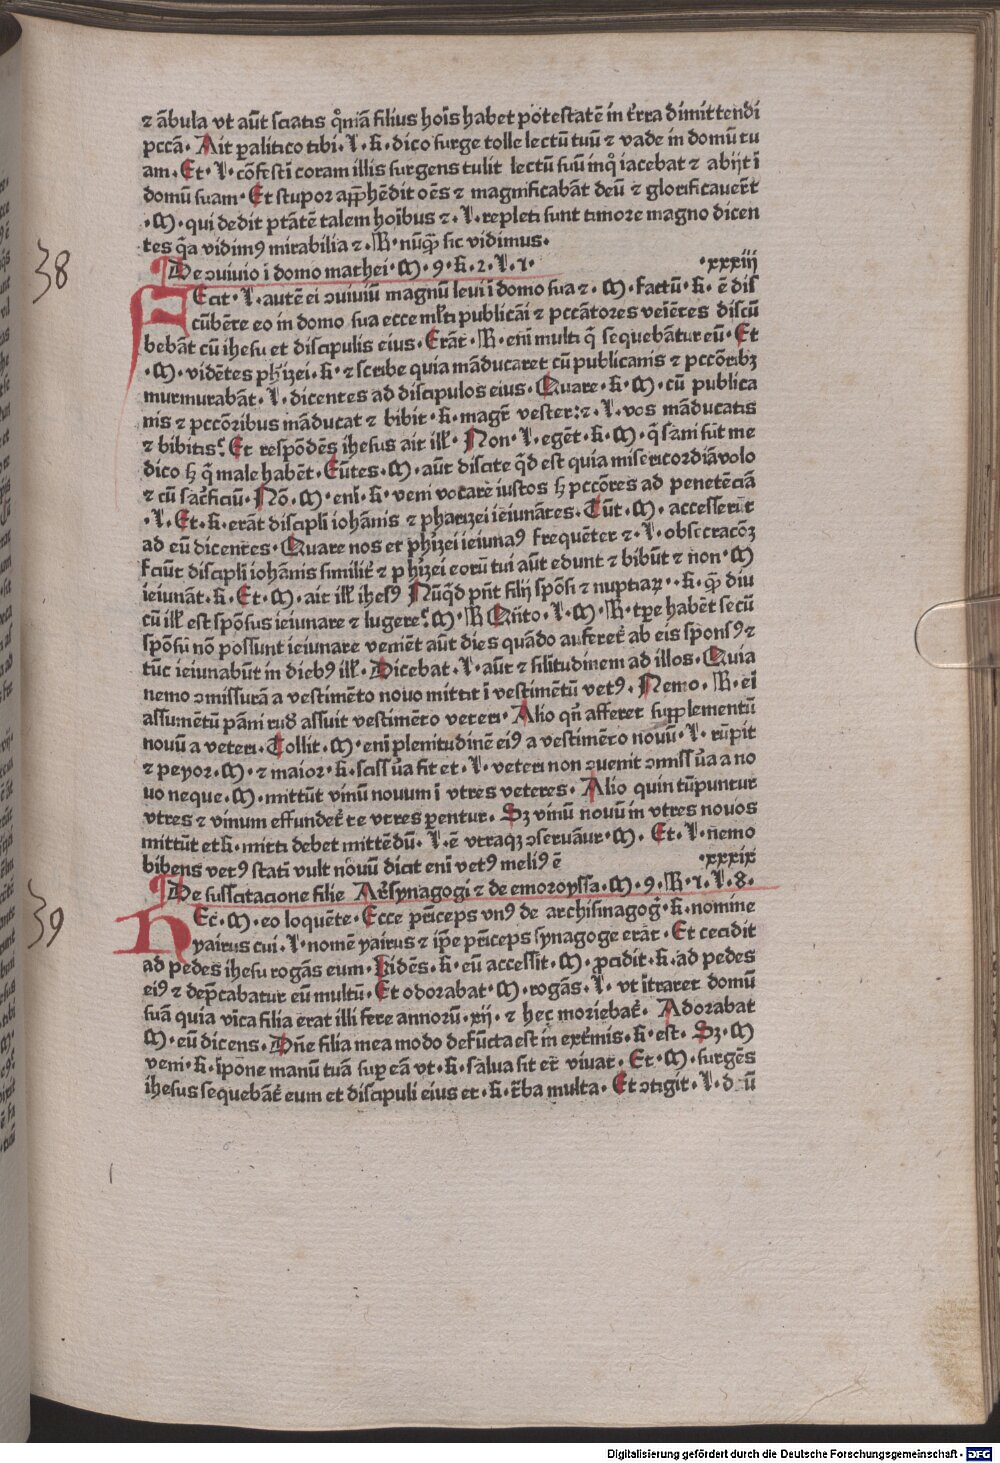 ⁊ ābula vt aūt sciatis qͦniā filius hoīs habet potestatē in t̄rra dimittendi
pccā · Ait ꝑalitico tibi · L · k · dico surge tolle lectū tuū ⁊ vade in domū tu
am · Et · L · cōfestī coram illis surgens tulit lectū suū inqͦ iacebat ⁊ abijt ī
domū suam · Et stupor apꝑhēdit oēs ⁊ magnificabāt deū ⁊ glorificauer̄t
· M · qui dedit ptātē talem hoībus ⁊ · L · repleti sunt timore magno dicen
tes qͣa vidimꝯ mirabilia ⁊ · R · nūqͣꝫ sic vidimus ·
De ꝯuiuio ī domo mathei · M · 9 · k · 2 · L · 1 ·
· xxxiij
38
FEcit · L · autē ei ꝯuiuiū magnū leui ī domo sua ⁊ · M · factū · k · ē dis
cūbēre eo in domo sua ecce ml̄ti publicāi ⁊ pccātores veīēres discū
bebāt cū ihesu et discipulis eius · Erāt · R · enī multi qͥ sequebātur eū · Et
· M · vidētes phīzei · k · ⁊ scribe quia māducaret cū publicanis ⁊ pccōribꝫ
murmurabāt · L · dicentes ad discipulos eius · Quare · k · M · cū publica
nis ⁊ pccōribus māducat ⁊ bibit · k · magr̄ vester: ⁊ · L · vos māducatis
⁊ bibitis? Et respōdēs ihesus ait ill̄ · Non · L · egēt · k · M · qͥ sani sūt me
dico ꜧ qͥ male habēt · Eūtes · M · aūt discite qͥd est quia misericordiā volo
⁊ cū sac̄ficiū · Nō · M · eni · k · veni vocare iustos ꜧ pccōres ad penetēciā
· L · Et · k · erāt discipli iohānis ⁊ pharizei ieiunātes · Tūt · M · accesserūt
ad eū dicentes · Quare nos et phīzei ieiunaꝯ frequēter ⁊ · L · obsecracōꝫ
faciūt discipli iohānis similit̄ ⁊ phīzei eorū tui aūt edunt ⁊ bibūt ⁊ non · M
ieiunāt · k · Et · M · ait ill̄ ihesꝯ Nūqͥd pn̄t filij spōsi ⁊ nuptiaꝝ · · k · qͣꝫ diu
cū ill̄ est spōsus ieiunare ⁊ lugere? M · R Qn̄to · L · M · R · tꝑe habēt secū
spōsū nō possunt ieiunare veniēt aūt dies quādo auferet̄ ab eis sponsꝯ ⁊
tūc ieiunabūt in diebꝯ ill̄ · Dicebat · L · aūt ⁊ silitudinem ad illos · Quia
nemo ꝯmissurā a vestimēto nouo mittit ī vestimētū vetꝯ · Nemo · R · eī
assumētū pāni rud̄ assuit vestimēto veteri · Alio qn̄ afferet supplementū
nouū a veteri · Tollit · M · enī plenitudinē eiꝯ a vestimēto nouū · L · rūpit
⁊ peyor · M · ⁊ maior · k · sciss ūa fit et · L · veteri non ꝯuenit ꝯmiss ūa a no
uo neque · M · mittūt vinū nouum ī vtres veteres · Alio quin rūpuntur
vtres ⁊ vinum effundet̄ ⁊e vtres ꝑentur · Sꝫ vinū nouū in vtres nouos
mittūt et k · mitti debet mittēdū · L · ē vtraqꝫ ꝯseruātur · M · Et · L · nemo
bibens vetꝯ stati vult nouū dicit enī vetꝯ meliꝯ ē
· xxxix
De suscitacione filie Ar̄synagogi ⁊ de emoroyssa · M · 9 · R · 1 · L · 8 ·
39
HEc · M · eo loquēte · Ecce pr̄iceps vnꝯ de archisinagoḡ · k · nomine
yairus cui · L · nomē yairus ⁊ ip̄e pr̄iceps synagoge erāt · Et cecidit
ad pedes ihesu rogās eum · Vidēs · k · eū accessit · M · ꝓcidit · k · ad pedes
eiꝯ ⁊ dep̄cabatur eū multū · Et odorabat · M · rogās · L · vt ītraret domū
suā quia vica filia erat illi fere annorū · xij · ⁊ hec moriebat̄ · Adorabat
M · eū dicens · Dn̄e filia mea modo defūcta est in ext̄mis · k · est · Sꝫ · M
veni · k · īpone manū tuā suꝑ eā vt · k · salua sit et̄ viuat · Et · M · surgēs
ihesus sequebāt̄ eum et discipuli eius et · k · t̄ba multa · Et ꝯtigit · L · d ū
Digitalisierung gefördert durch die Deutsche Forschungsgemeinschaft - DFG